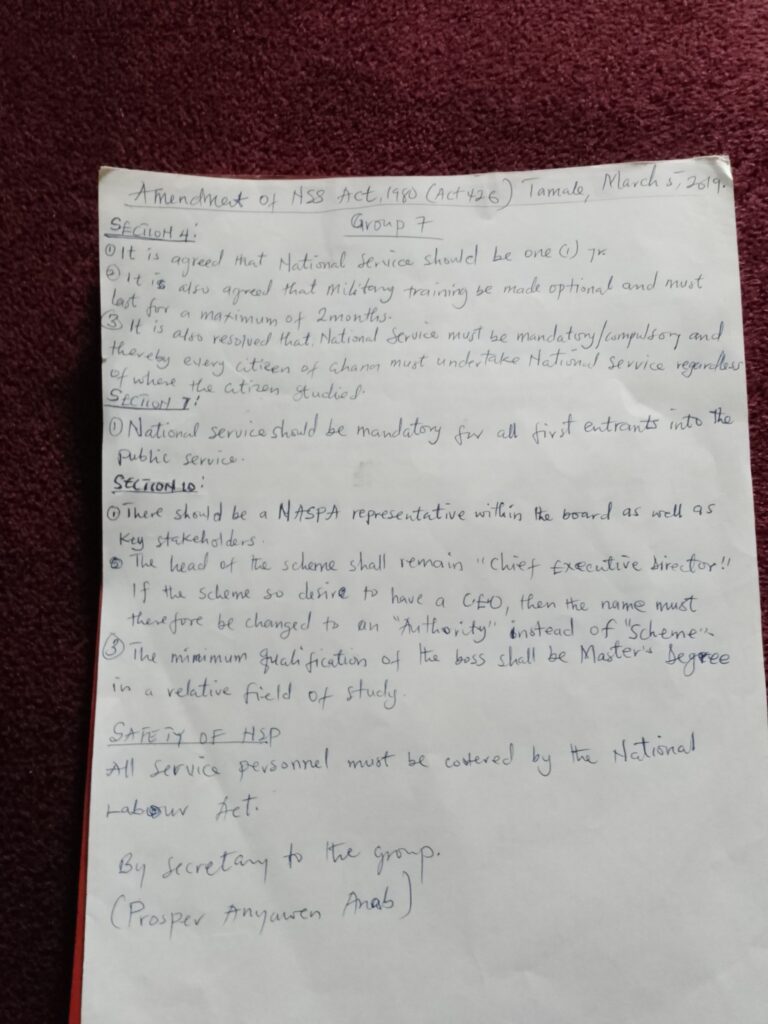 Amendment of NSS Act, 1980 (Act 426) Tamale, March 5, 2019.
Group 7
SECTION 4:
① It is agreed that National Service should be one (1) yr
② It is also agreed that military training be made optional and must
last for a maximum of 2 months.
③ It is also resolved that, National Service must be mandatory/compulsory and
thereby every citizen of Ghana must undertake National service regardless
of where the citizen studied.
SECTION 7:
① National service should be mandatory for all first entrants into the
public service.
SECTION 10:
① There should be a NASPA representative within the board as well as
key stakeholders.
② The head of the scheme shall remain "Chief Executive Director".
If the scheme so desire to have a CEO, then the name must
therefore be changed to an "Authority" instead of "Scheme".
③ The minimum qualification of the boss shall be Master's Degree
in a relative field of study.
SAFETY OF NSP
All service personnel must be covered by the National
Labour Act.
By secretary to the group.
(Prosper Anyawen Anab)